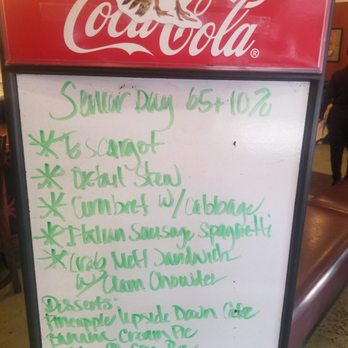 Coca-Cola®
Senior Day 65+ 10%
* Escargot
* Oxtail Stew
* Cornbeef w/ Cabbage
* Italian Sausage Spaghetti
* Crab Melt Sandwich
w/ Clam Chowder
Desserts:
Pineapple Upside Down Cake
Banana Cream Pie